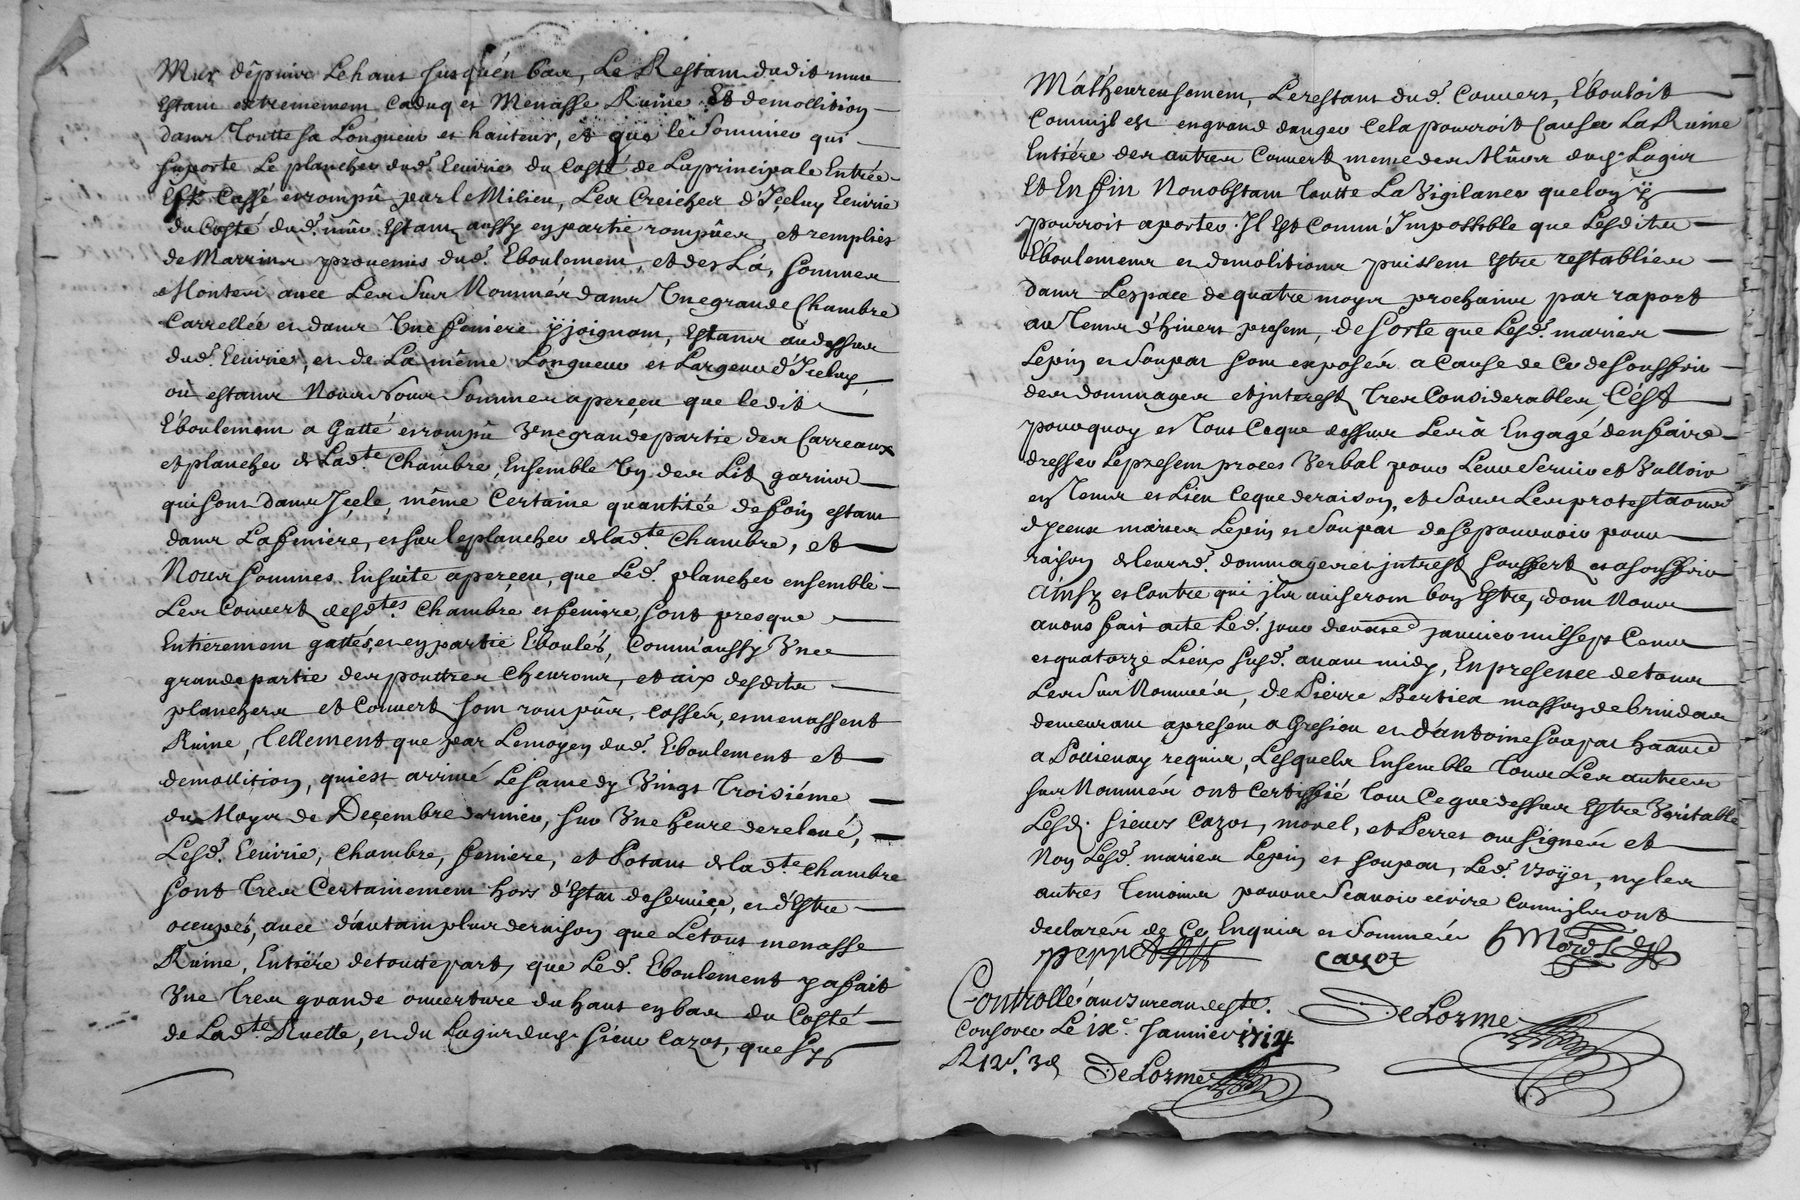 Mur dépuis Le haut Jusquén bas, Le Restant dudit mur
Estant extrememem Caduq et Menasse Ruine Et demollition
dans Toutte sa Longueur et hauteur, et que le Sommier qui
suporte Le plancher dud. Ecuirie du Costé de La principale Entrée
Est Cassé et rompû par le Milieu, Les Creiches d'Içeluy Ecurie
du Costé dud. mûr Estant aussy en partie rompûes, et remplies
de Marrins prouenus dud. Eboulement, et des Là, sommes
Montés auec Les Sus Nommés dans Une grande Chambre
Carrellée et dans Une feniere ÿ joignant, Estant audessus
dud. Ecuirie, et de La même Longueur et Largeur d'Iceluy,
où estans Nous Nous Sommes aperçeu que ledit
Eboulement a Gatté et rompu Vne grande partie des Carreaux
et plancher de Lad.te Chambre, Ensemble Un des Lit garnis
qui sont dans Içele, même Certaine quantitée de foin estant
dans La feniere, et sur le plancher de lad.te Chambre, et
Nous sommes Ensuite aperçeu, que Led. plancher ensemble
Les Couuert desd.tes Chambre et feniere, sont presque
Entierement gattés, et en partie Eboulés, Comm'aussy Vne
grande partie des pouttres Cheurons, et aix desdits
planchers et Couuert sont rompûs, cassés, et menassent
Ruine, Tellement que par Le moyen dud. Eboulement et
demollition, qui est arriué Le Samedy Vingt Troisiéme
du Moys de Deçembre dernier, sur Vne heure de releué,
Lesd. Ecuirie, Chambre, feniere, et Potans de lad.te chambre
sont Tres Certainement hors d'Estat de seruiçe, et d'Estre
occupés, auec d'autant plus de raison que Le tout menasse
Ruine, Entiëre de toutte part, que Led. Eboulement y a fait
Vne Tres grande ouuerture du haut en bas du Costé
de Lad.te Ruette, et du Logis dud. Sieur Cazot, que sy
Málheureusement, Le restant dud. Couuert, Ebouloit
Comm'il est en grand danger Cela pourroit Causer La Ruine
Entiére des autres Couuert, meme des Mûrs dud. Logis
Et Enfin Nonobstant Toutte La Vigilance que lon ÿ
pourroit aporter. Il Est Comm'Impossible que Lesdites
Eboulements et demolitions puissent Estre restablies
dans Lespace de quatre moys prochains par raport
au Tems d'hiuert present, de Sorte que Lesd. mariés
Lepin et Soupat sont exposés a Cause de Ce de souffrir
des dommages et interest Tres Considerables, C'est
pourquoy et Tout Ce que dessus Les à Engagé d'en faire
dresser Le present proces Verbal pour Leur Seruir et Valloir
en Tems et Lieu Ce que de raison, et Sous Les protestaons
d'Yceux mariés Lepin et Soupat de se pouruoir pour
raison de leurd. dommages et jntrest souffert et a souffrir
Ainsy et Contre qui jls auiseront bon Estre, dont Nous
auons fait acte Led. jour janvier mil sept Cent
et quatorze Lieux susd. auant midy, En presence de tous
Les Sus Nommés, de Pierre Bertier masson de brindas
demeurant apresent a Gresieu et d'antoine soupat
a Pollienay réquis, Lesquels Ensemble Tous Les autres
sus Nommés ont Certiffié Tout Ce que dessus Estre Veritable
Lesd. sieurs Cazot, morel, et Perret ont signés et
Non Lesd. mariés Lepin et soupat, Led. , ny les
autres Temoins pour ne Scauoir écrire Comm'jls ont
declarés de Ce Enquis et Sommés Morel
perret cazot
Controllé au bureau de
Le ix.e Januier 1714 DeLorme
R 12 s. 3 d DeLorme